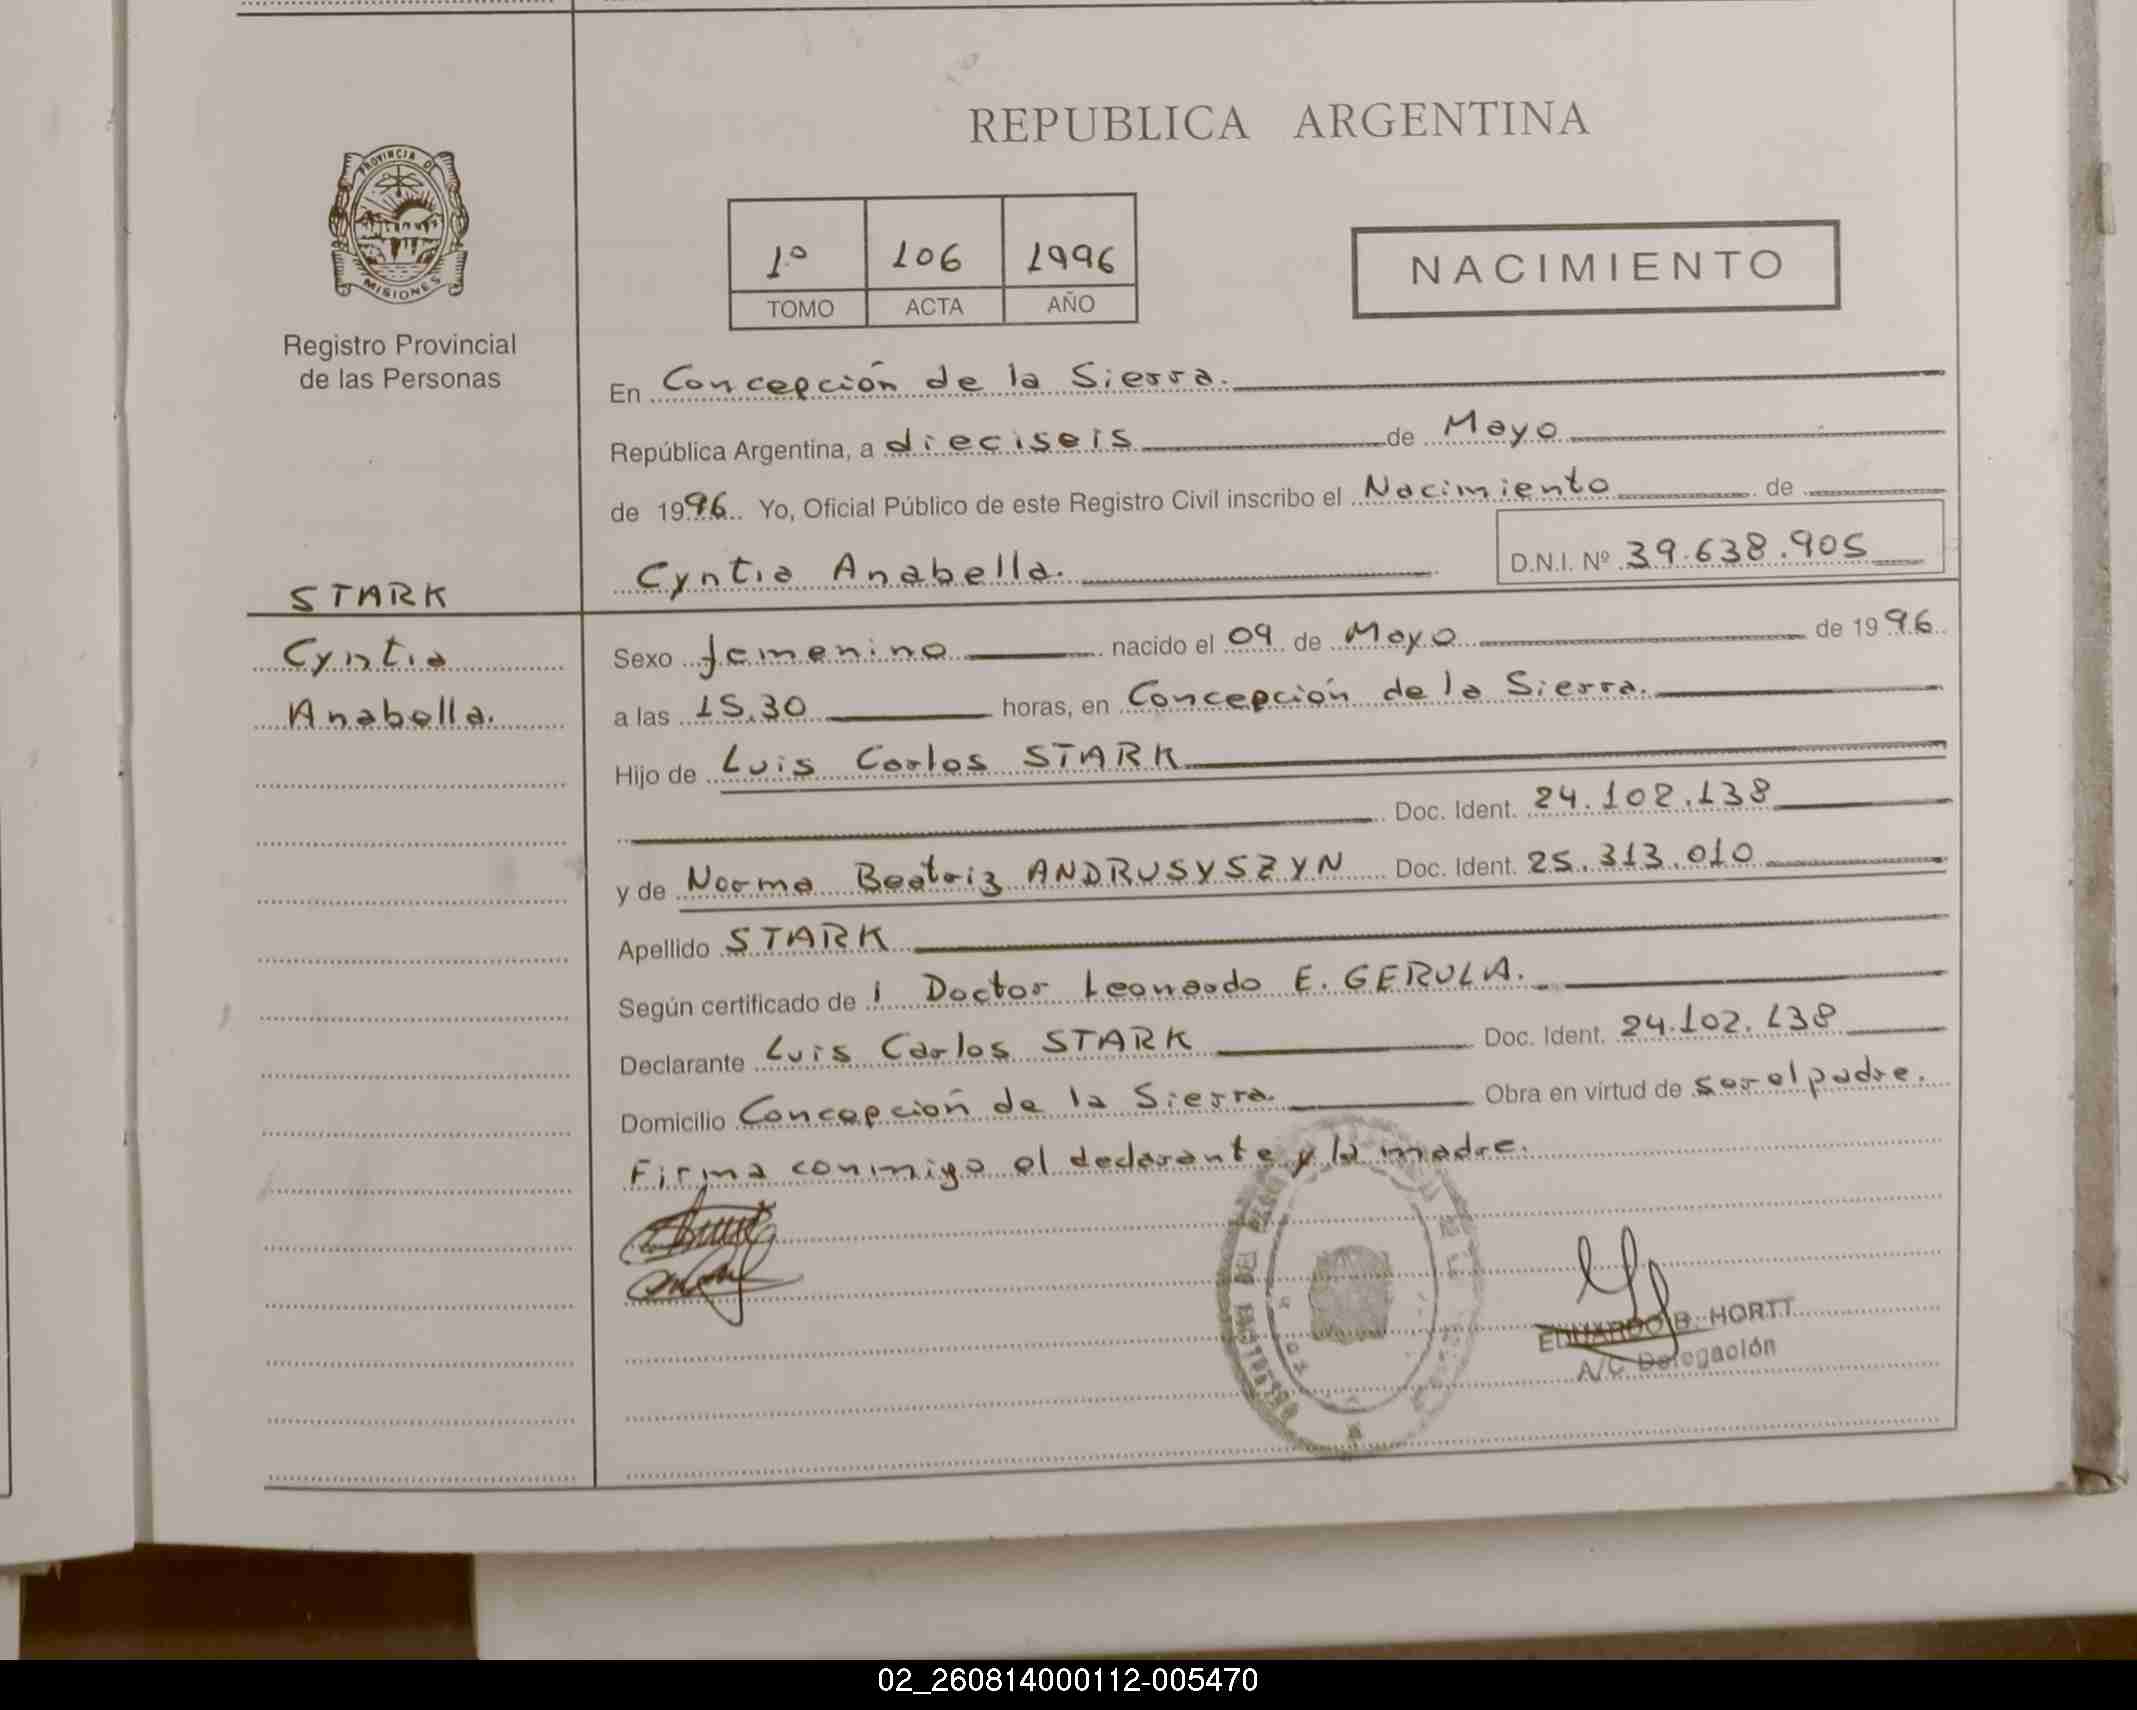 REPUBLICA ARGENTINA
PROVINCIA DE
MISIONES
Registro Provincial
de las Personas
1º 106 1996
TOMO ACTA AÑO
NACIMIENTO
En Concepción de la Sierra.
República Argentina, a dieciseis de Mayo
de 1996. Yo, Oficial Público de este Registro Civil inscribo el Nacimiento de
Cyntia Anabella. D.N.I. Nº 39.638.905
STARK
Cyntia
Anabella.
Sexo femenino nacido el 09 de Mayo de 1996
a las 15.30 horas, en Concepción de la Sierra.
Hijo de Luis Carlos STARK
Doc. Ident. 24.102.138
y de Norma Beatriz ANDRUSYSZYN Doc. Ident. 25.313.010
Apellido STARK
Según certificado de l Doctor Leonardo E. GERULA.
Declarante Luis Carlos STARK Doc. Ident. 24.102.138
Domicilio Concepción de la Sierra. Obra en virtud de ser el padre.
Firma conmigo el declarante y la madre.
EDUARDO B. HORTT
A/C Delegación
02_260814000112-005470